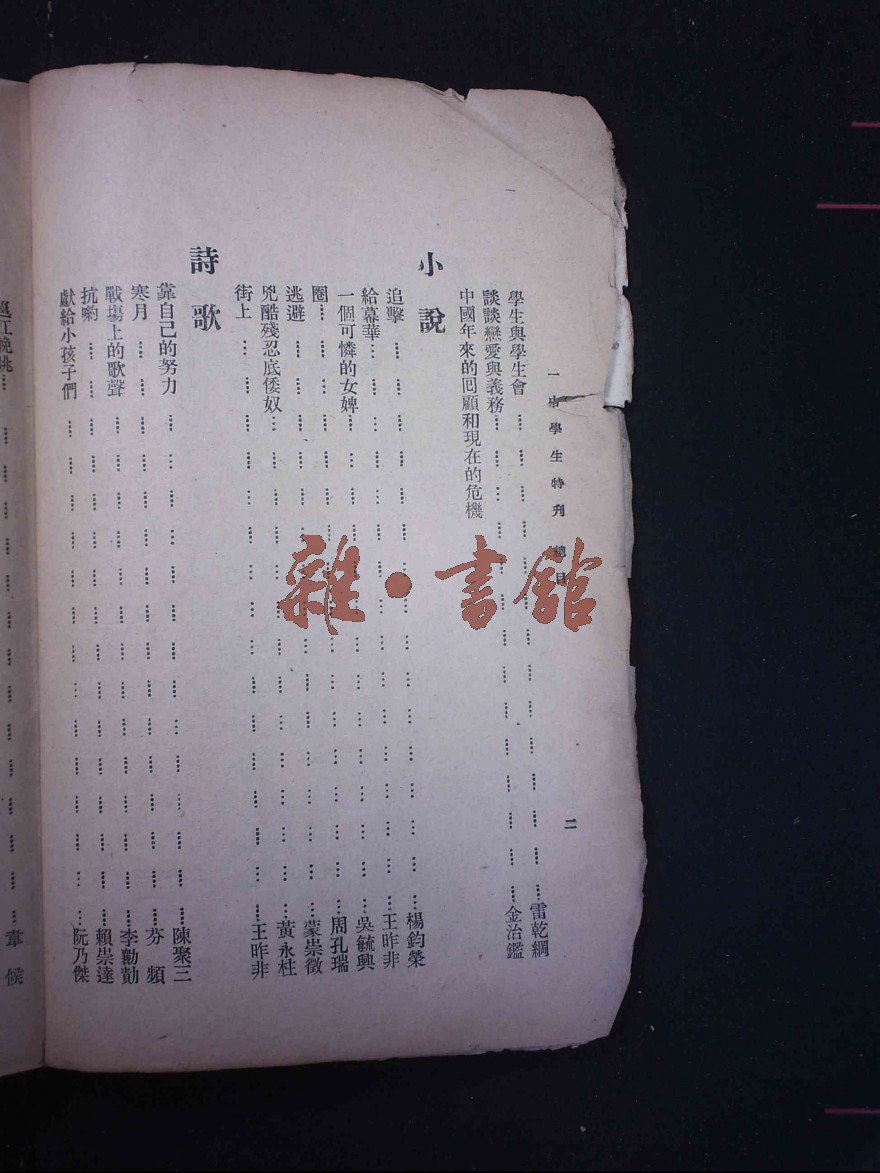 一中學生特刊 總目 二
學生與學生會……雷乾綱
談談戀愛與義務……金治鑑
中國年來的回顧和現在的危機……
小說
追擊……楊鈞榮
給幕華……王昨非
一個可憐的女婢……吳毓興
圈……周孔瑞
逃避……蒙崇徵
兇酷殘忍底倭奴……黃永柱
街上……王昨非
詩歌
靠自己的努力……陳聚三
寒月……芬頻
戰塲上的歌聲……李勷勷
抗喲……賴崇達
獻給小孩子們……阮乃傑
江晚眺……韋候
雜·書館